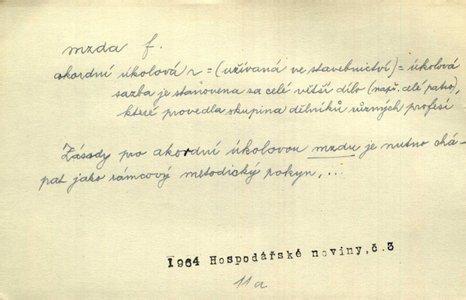 mzda f.
akordní úkolová ~ = (užívaná ve stavebnictví) = úkolová
sazba je stanovena za celé větší dílo (např. celé patro),
které provedla skupina dělníků různých profesí
Zásady pro akordní úkolovou mzdu je nutno chá-
pat jako rámcový metodický pokyn, ...
1964 Hospodářské noviny,č.3
11a